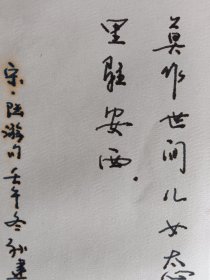 莫作世间儿女态
里驻安西
宋·陆游句壬午冬孙建